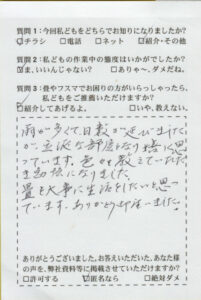 質問１：今回私どもをどちらでお知りになりましたか?
☑チラシ □電話 □ネット □紹介・その他
質問２：私どもの作業中の態度はいかがでしたか?
☑ま、いいんじゃない? □ありゃ～、ダメだね。
質問３：畳やフスマでお困りの方がいらっしゃったら、
私どもをご推薦いただけますか?
☑紹介してあげるよ。 □いや、教えない。
雨が多くて、日数が延びました
が、立派な部屋になり嬉しく思
っています。色々教えていただ
き勉強になりました。
畳を大事に生活をしたいと思っ
ています。ありがとう御座いました。
ありがとうございました。お答えいただいた、あなた様
の声を、弊社資料等に掲載させていただけますか?
□許可する ☑匿名なら □絶対ダメ